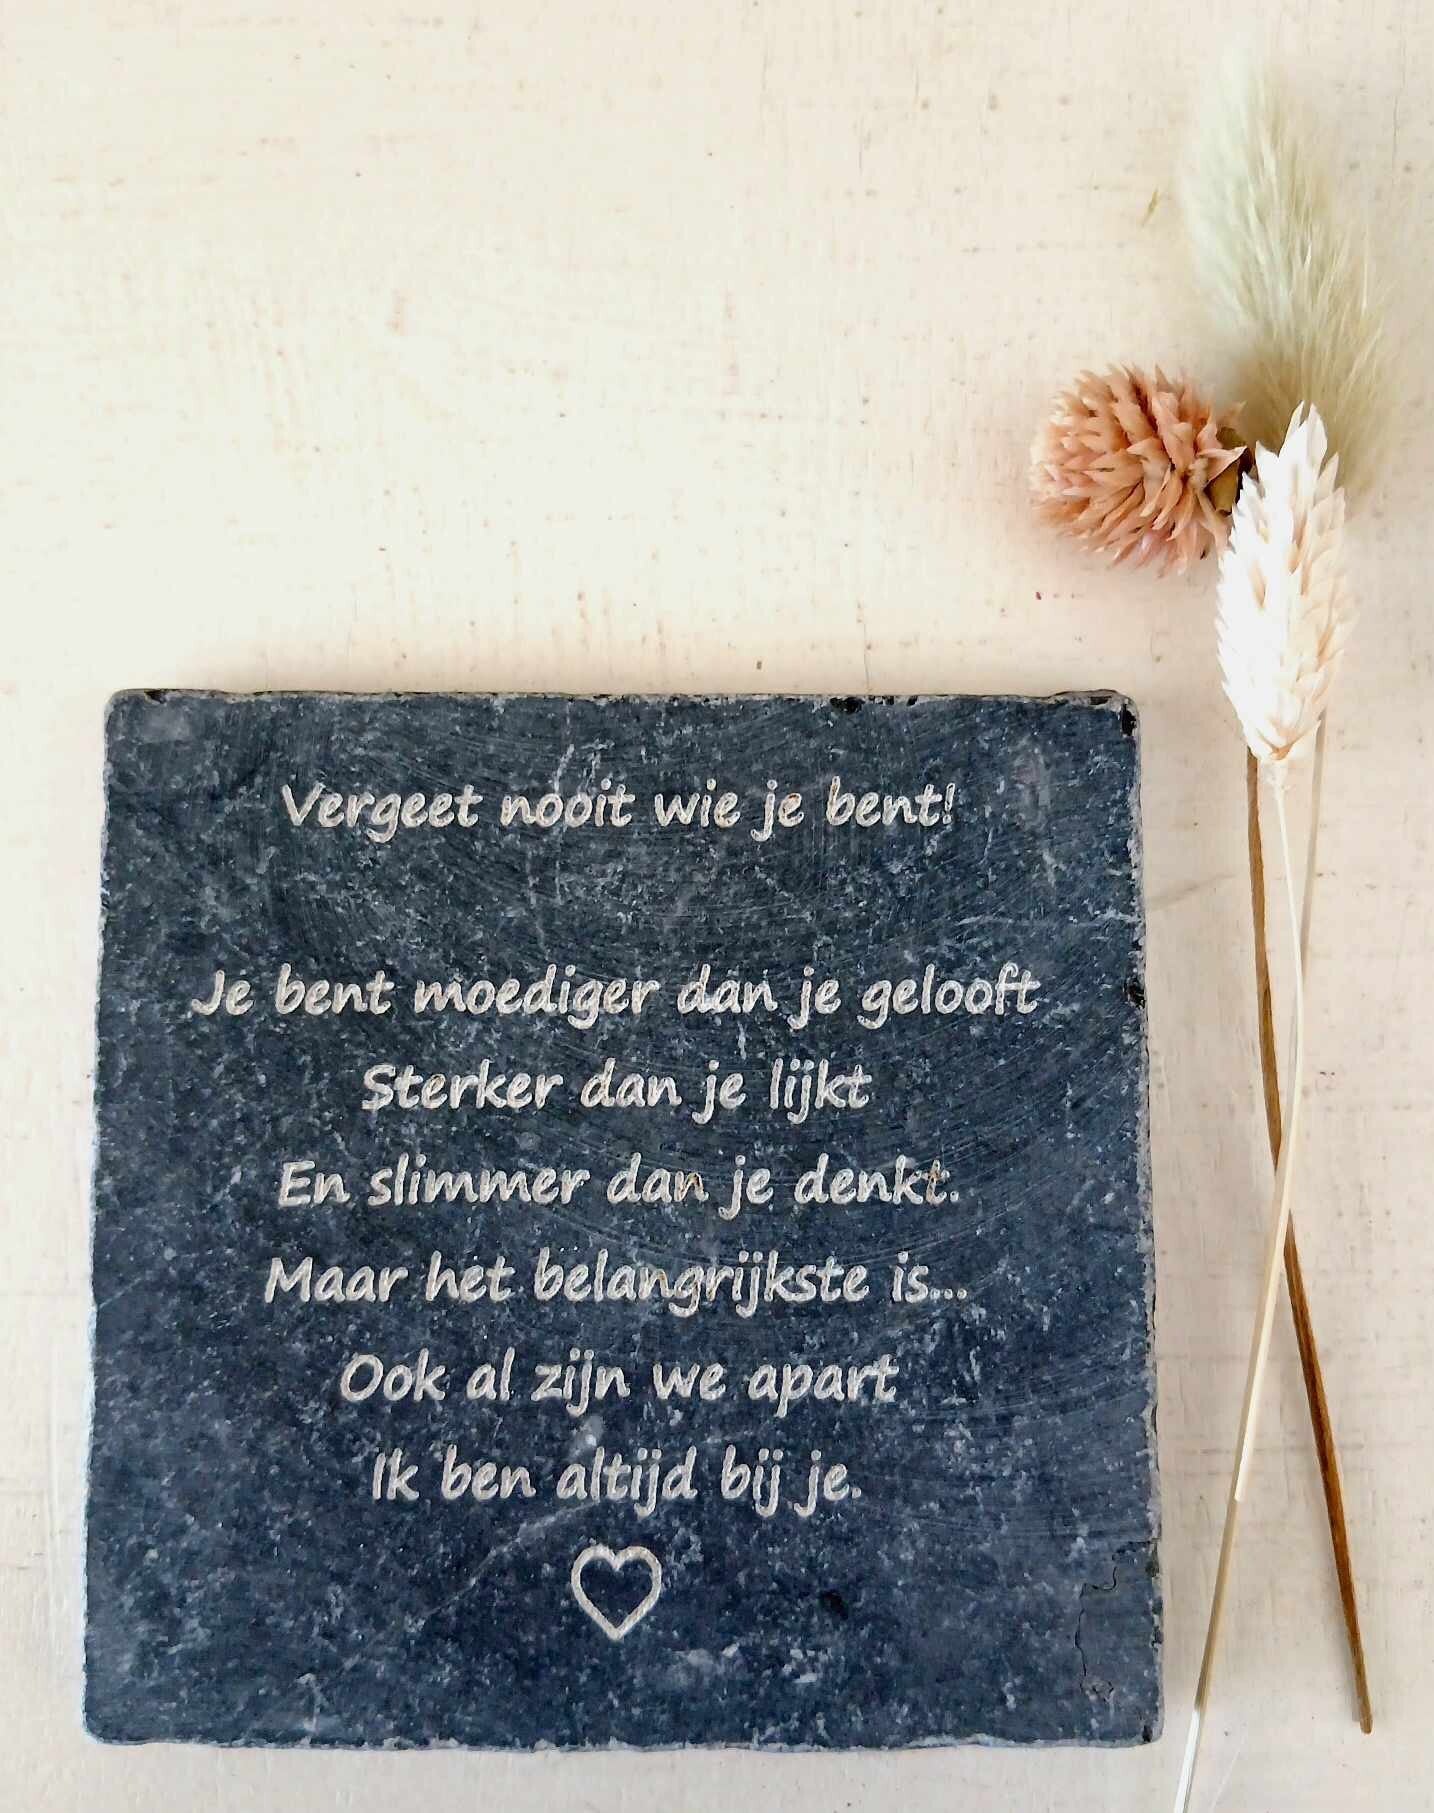 Vergeet nooit wie je bent!
Je bent moediger dan je gelooft
Sterker dan je lijkt
En slimmer dan je denkt.
Maar het belangrijkste is...
Ook al zijn we apart
Ik ben altijd bij je.